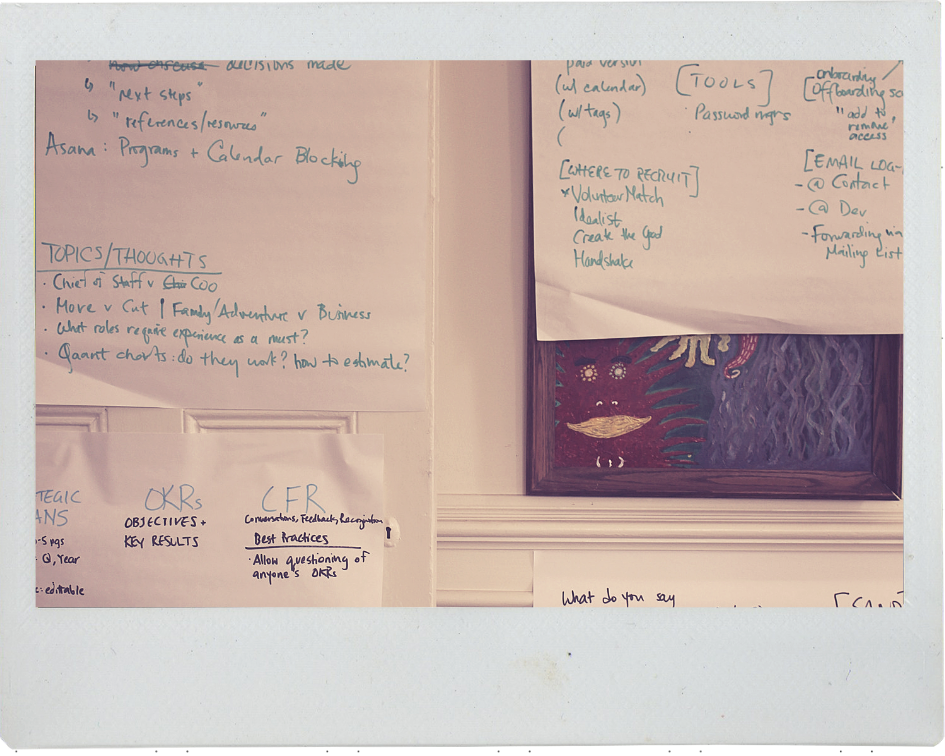 decisions made
↳ "next steps"
↳ "references/resources"
Asana: Programs + Calendar Blocking
TOPICS/THOUGHTS
· Chief of Staff v COO
· Move v Cut | Family/Adventure v Business
· What roles require experience as a must?
· Qaant charts: do they work? how to estimate?
TEGIC
ANS
-5 pgs
Q, Year
: editable
OKRs
OBJECTIVES +
KEY RESULTS
CFR
Conversations, Feedback, Recognition
Best Practices
· Allow questioning of
anyone's OKRs
paid version
(w/ calendar)
(w/ tags)
(
[WHERE TO RECRUIT]
*VolunteerMatch
Idealist
Create the Good
Handshake
[TOOLS]
· Password mgrs
onboarding /
[Offboarding so
"add to
remove"
access
[EMAIL LOG-
- @ Contact
- @ Dev
- Forwarding via
Mailing List
What do you say